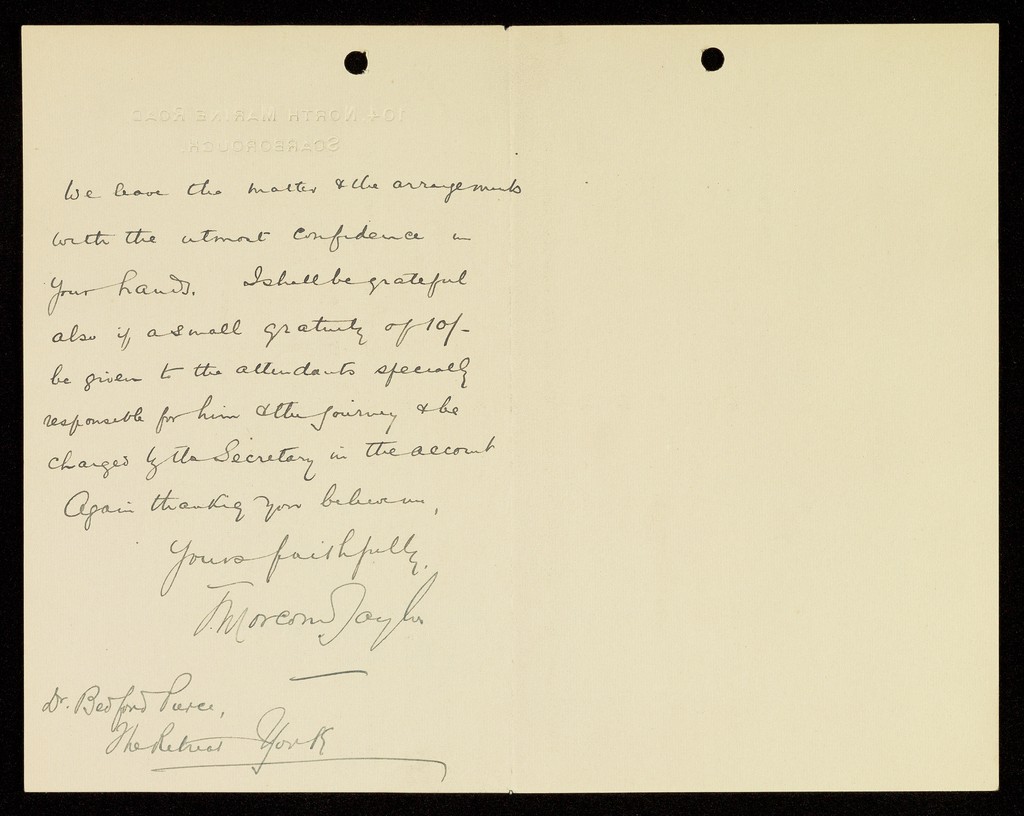 104 NORTH MARINE ROAD
SCARBOROUGH.
We leave the matter & the arrangements
with the utmost confidence in
your hands. I shall be grateful
also if a small gratuity of 10/-
be given to the attendants specially
responsible for him & the journey & be
charged by the Secretary in the account
Again thanking you believe me,
Yours faithfully,
F. Morcom Taylor
Dr. Bedford Pierce,
The Retreat York